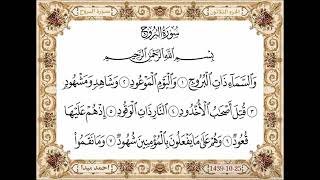 سورة البروج
الجزء الثلاثون
سُورَةُ البُرُوجِ
بِسْمِ اللَّهِ الرَّحْمَٰنِ الرَّحِيمِ
وَالسَّمَاءِ ذَاتِ الْبُرُوجِ ١ وَالْيَوْمِ الْمَوْعُودِ ٢ وَشَاهِدٍ وَمَشْهُودٍ
٣ قُتِلَ أَصْحَابُ الْأُخْدُودِ ٤ النَّارِ ذَاتِ الْوَقُودِ ٥ إِذْ هُمْ عَلَيْهَا
قُعُودٌ ٦ وَهُمْ عَلَىٰ مَا يَفْعَلُونَ بِالْمُؤْمِنِينَ شُهُودٌ ٧ وَمَا نَقَمُوا
1439-10-25